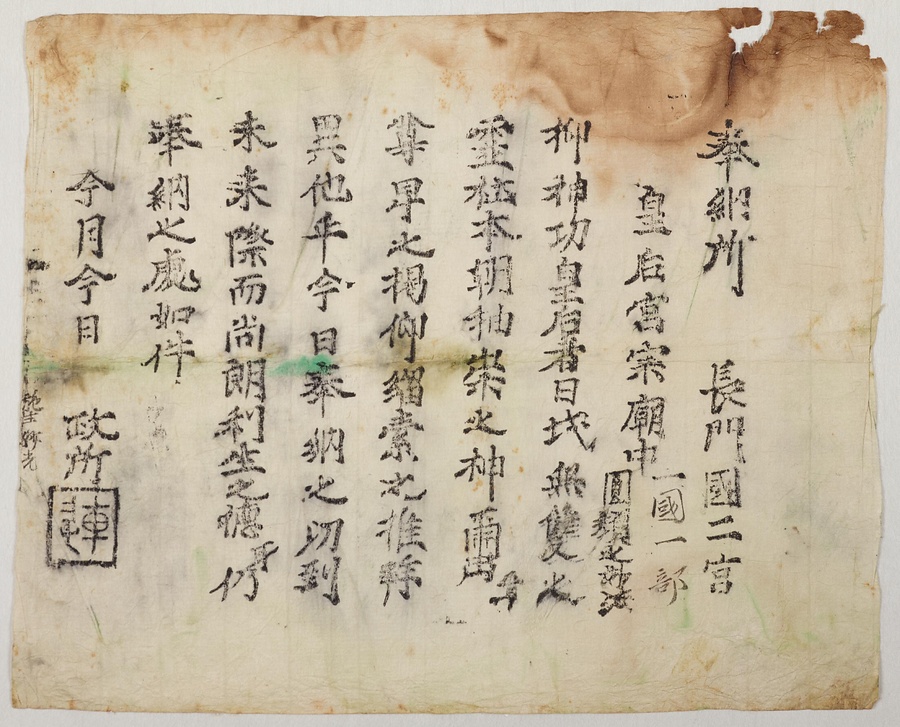 奉納所 長門國二宮
皇后宮宗廟中 一國一部
圓類之
抑神功皇后者日域無雙之
霊社本朝抽崇之神
尊卑之揭仰緇素之推
異他年今日奉納之功到
未来際而尚朗利生之仍
奉納之處如件
今月今日 政所